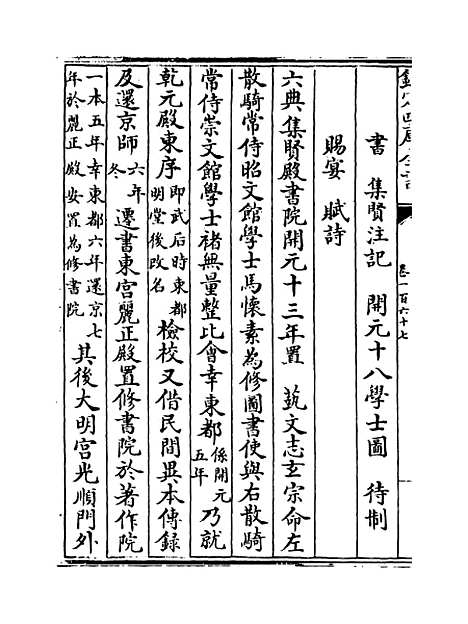 欽定四庫全書
卷一百六十七
書 集賢注記 開元十八學士圖 待制
賜宴 賦詩
六典集賢殿書院開元十三年置 藝文志玄宗命左
散騎常侍昭文館學士馬懷素為修圖書使與右散騎
常侍崇文館學士褚無量整比會幸東都係開元五年乃就
乾元殿東序即武后時東都明堂後改名檢校又借民間異本傳録
及還京師六年冬遷書東宮麗正殿置修書院於著作院
一本五年幸東都六年還京七年於麗正殿安置為修書院其後大明宮光順門外